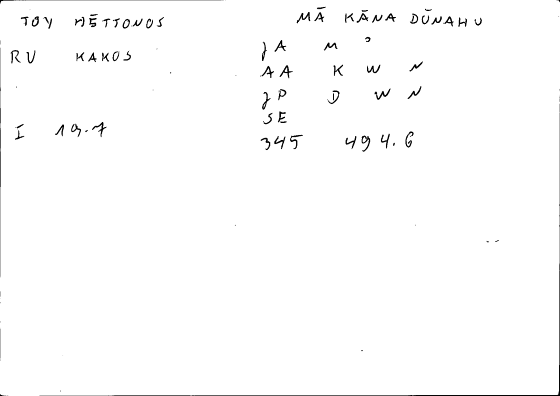 TOY HĒTTONOS
RU KAKOS
I 19.7
MĀ KĀNA DŪNAHU
JA M ʾ
AA K W N
JP D W N
SE
345 494.6